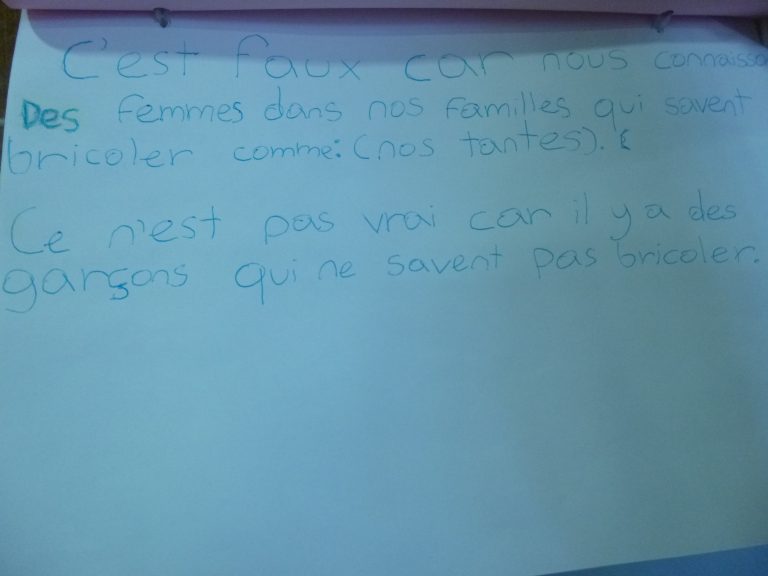 C'est faux car nous connaisso
Des femmes dans nos familles qui savent
bricoler comme: (nos tantes).
Ce n'est pas vrai car il y a des
garçons qui ne savent pas bricoler.